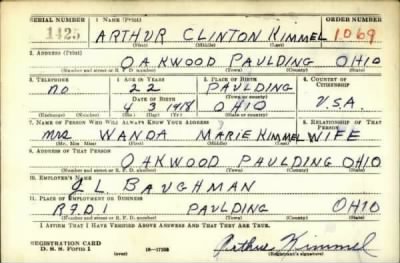 SERIAL NUMBER 1. NAME (Print) ORDER NUMBER
1425 ARTHUR CLINTON KIMMEL 1069
(First) (Middle) (Last)
2. ADDRESS (Print)
OAKWOOD PAULDING OHIO
(Number and street or R. F. D. number) (Town) (County) (State)
3. TELEPHONE 4. AGE IN YEARS 5. PLACE OF BIRTH 6. COUNTRY OF CITIZENSHIP
NO 22 PAULDING
(Town or county)
DATE OF BIRTH
4 3 1918 OHIO U.S.A.
(Exchange) (Number) (Mo.) (Day) (Yr.) (State or country)
7. NAME OF PERSON WHO WILL ALWAYS KNOW YOUR ADDRESS 8. RELATIONSHIP OF THAT PERSON
Mrs WANDA MARIE KIMMEL WIFE
(Mr., Mrs., Miss) (First) (Middle) (Last)
9. ADDRESS OF THAT PERSON
OAKWOOD PAULDING OHIO
(Number and street or R. F. D. number) (Town) (County) (State)
10. EMPLOYER'S NAME
J. L. BAUGHMAN
11. PLACE OF EMPLOYMENT OR BUSINESS
RFD 1 PAULDING OHIO
(Number and street or R. F. D. number) (Town) (County) (State)
I AFFIRM THAT I HAVE VERIFIED ABOVE ANSWERS AND THAT THEY ARE TRUE.
REGISTRATION CARD
D. S. S. Form 1 (over) Arthur Kimmel
(Registrant's signature)